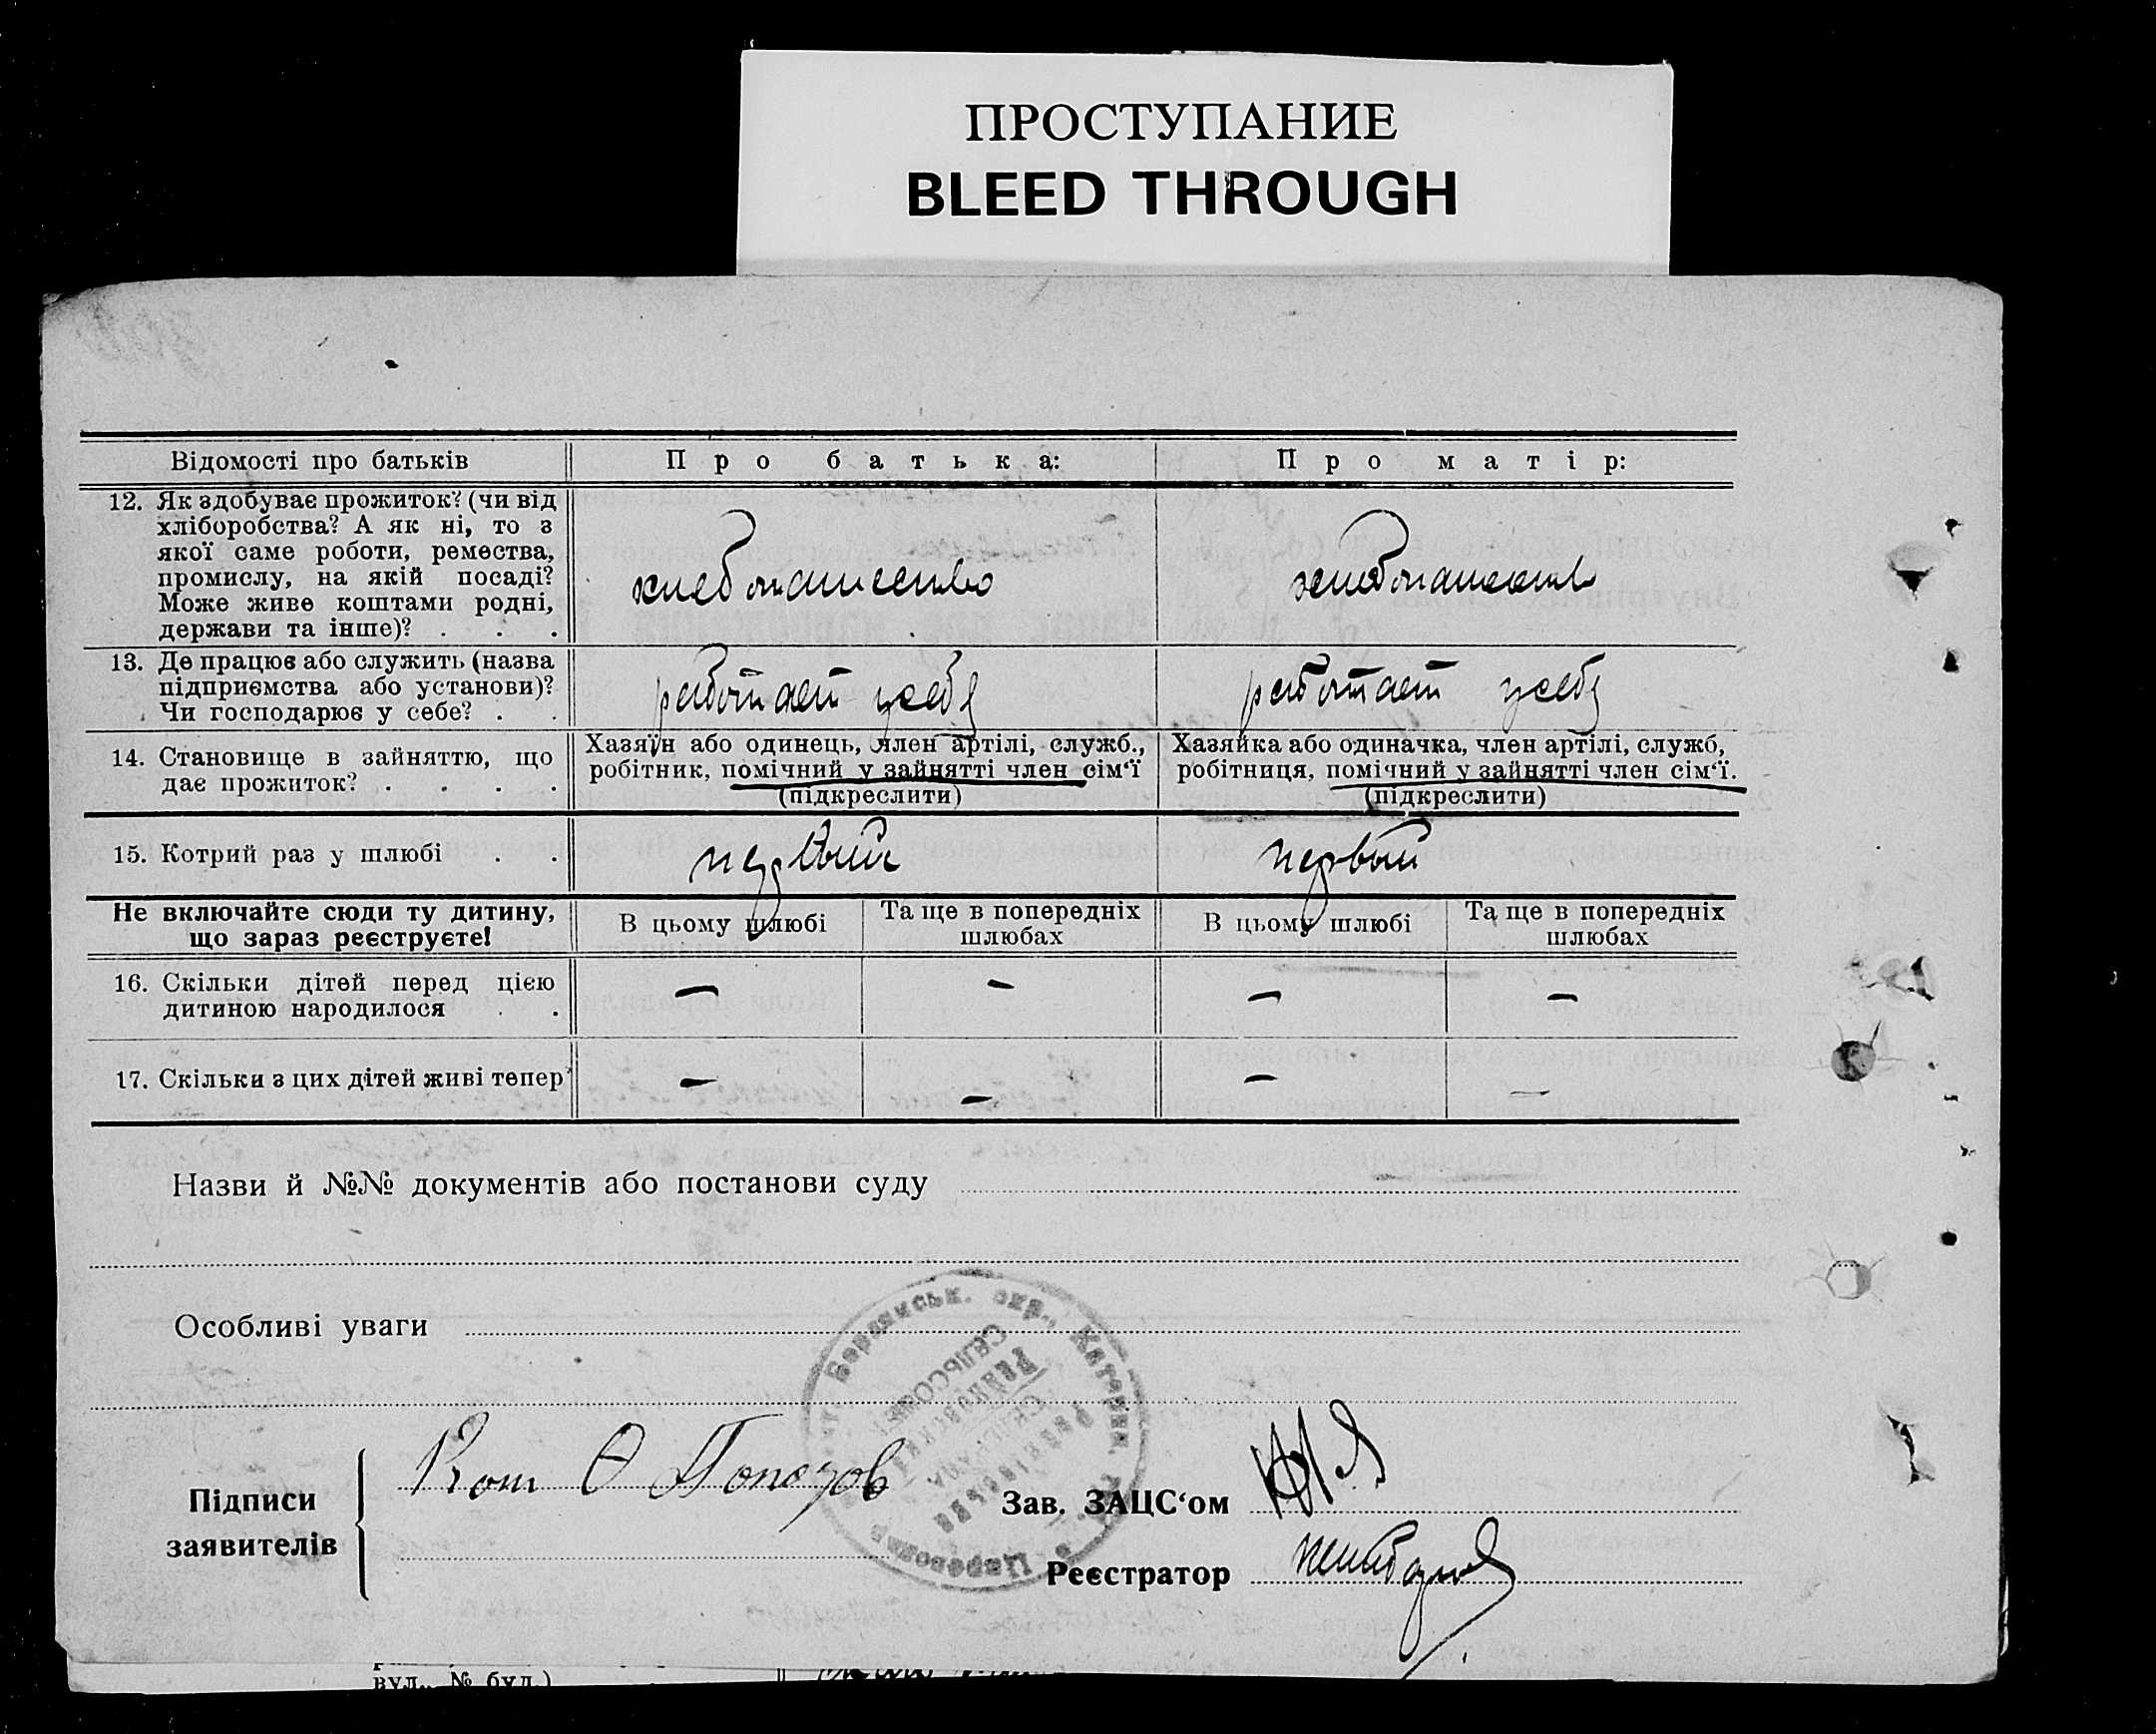 ПРОСТУПАНИЕ
BLEED THROUGH
Відомості про батьків
Про батька:
Про матір:
12. Як здобуває прожиток? (чи від
хліборобства? А як ні, то з
якої саме роботи, ремества,
промислу, на якій посаді?
Може живе коштами родні,
держави та інше)? . . .
хлебопашество
хлебопашество
13. Де працює або служить (назва
підприємства або установи)?
Чи господарює у себе? . .
работает у себя
работает у себя
14. Становище в зайняттю, що
дає прожиток? . . . .
Хазяїн або одинець, член артілі, служб.,
робітник, помічний у зайнятті член сім‘ї
(підкреслити)
Хазяйка або одиначка, член артілі, служб,
робітниця, помічний у зайнятті член сім‘ї.
(підкреслити)
15. Котрий раз у шлюбі . .
первый
первый
Не включайте сюди ту дитину,
що зараз реєструєте!
В цьому шлюбі
Та ще в попередніх
шлюбах
В цьому шлюбі
Та ще в попередніх
шлюбах
16. Скільки дітей перед цією
дитиною народилося . .
— — — —
17. Скільки з цих дітей живі тепер
— — — —
Назви й №№ документів або постанови суду
Особливі уваги
Бердянськ. окр., Катерин.
СЕЛЬСОВЕТ
Підписи
заявителів
Зав. ЗАЦС‘ом
Реєстратор
вул., № буд.)